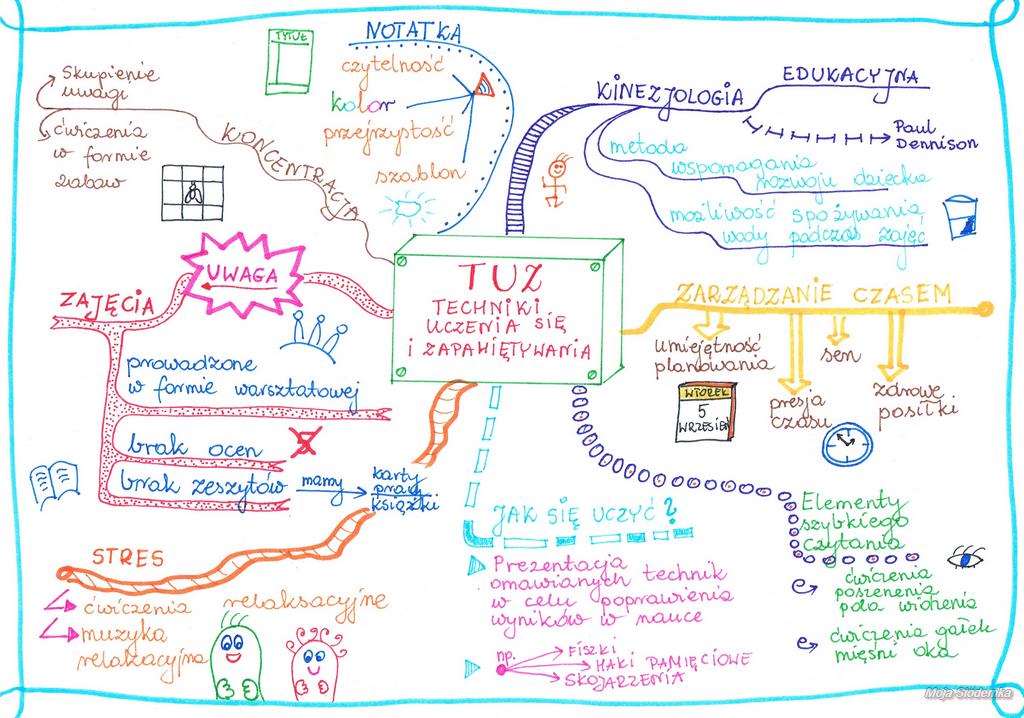 NOTATKA
TYTUŁ
czytelność
kolor
przejrzystość
szablon
KONCENTRACJA
Skupienie
uwagi
ćwiczenia
w formie
zabaw
KINEZJOLOGIA
EDUKACYJNA
Paul
Dennison
metoda
wspomagania
rozwoju dziecka
możliwość spożywania
wody podczas zajęć
TUZ
TECHNIKI
UCZENIA SIĘ
I ZAPAMIĘTYWANIA
UWAGA
ZAJĘCIA
prowadzone
w formie warsztatowej
brak ocen
5
brak zeszytów
mamy
karty
pracy
książki
ZARZĄDZANIE CZASEM
umiejętność
planowania
presja
czasu
sen
zdrowe
posiłki
WTOREK
5
WRZESIEŃ
STRES
ćwiczenia relaksacyjne
muzyka
relaxacyjna
JAK SIĘ UCZYĆ?
Prezentacja
omawianych technik
w celu poprawienia
wyników w nauce
np.
FISZKI
HAKI PAMIĘCIOWE
SKOJARZENIA
Elementy
szybkiego
czytania
ćwiczenia
poszerzenia
pola widzenia
ćwiczenia gałek
mięśni oka
Moja Siódemka